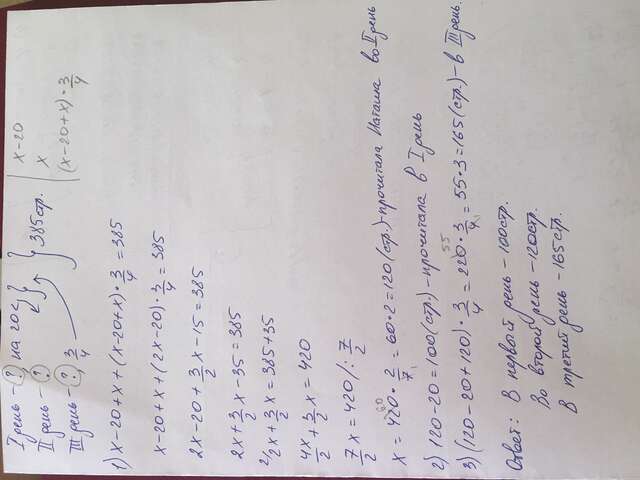 I день - ? на 20 с.< } } 385 стр. | x-20
II день - ? } | x
III день - ?, 3/4 | (x-20+x)·3/4
1) x-20+x+(x-20+x)·3/4=385
x-20+x+(2x-20)·3/4=385
2x-20+3/2x-15=385
2x+3/2x-35=385
2/2x+3/2x=385+35
4x/2+3/2x=420
7/2x=420/:7/2
x=420·2/7=60·2=120(стр.)-прочитала Наташа во II день
2) 120-20=100(стр.)-прочитала в I день
3) (120-20+120)·3/4=220·3/4=55·3=165(стр.)-в III день.
Ответ: В первый день - 100стр.
Во второй день - 120стр.
В третий день - 165стр.